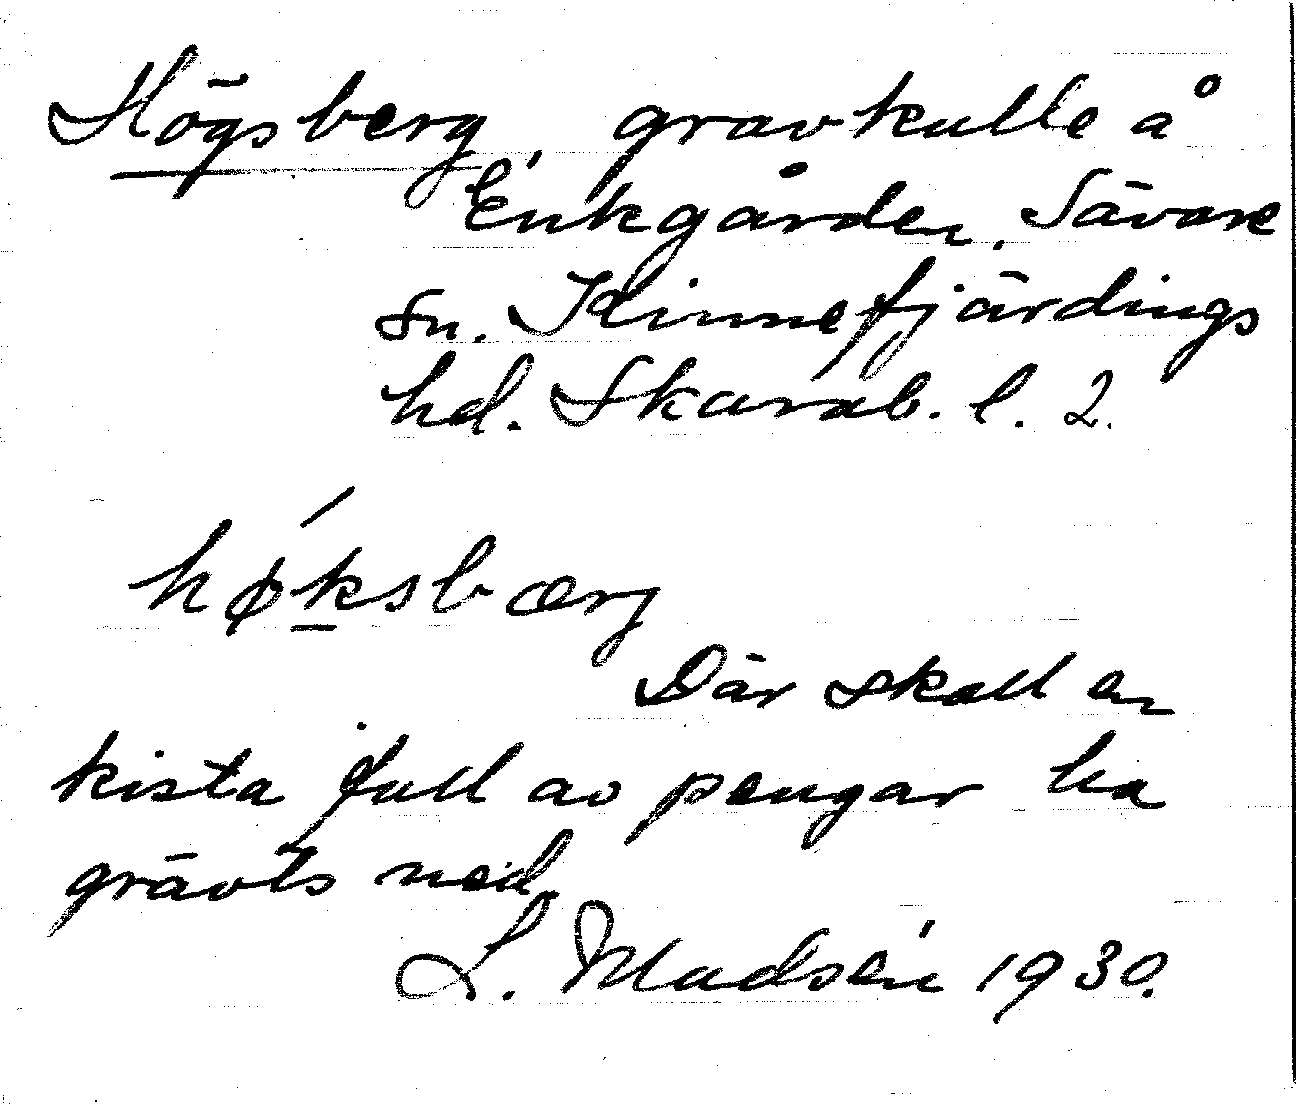 Högsberg, gravkulle å
Enkgården, Sävare
sn. Kinnefjärdings
hd. Skarab. l. 2.
hǿksbærg
Där skall en
kista full av pengar ha
grävts ned.
L. Madsén 1930.